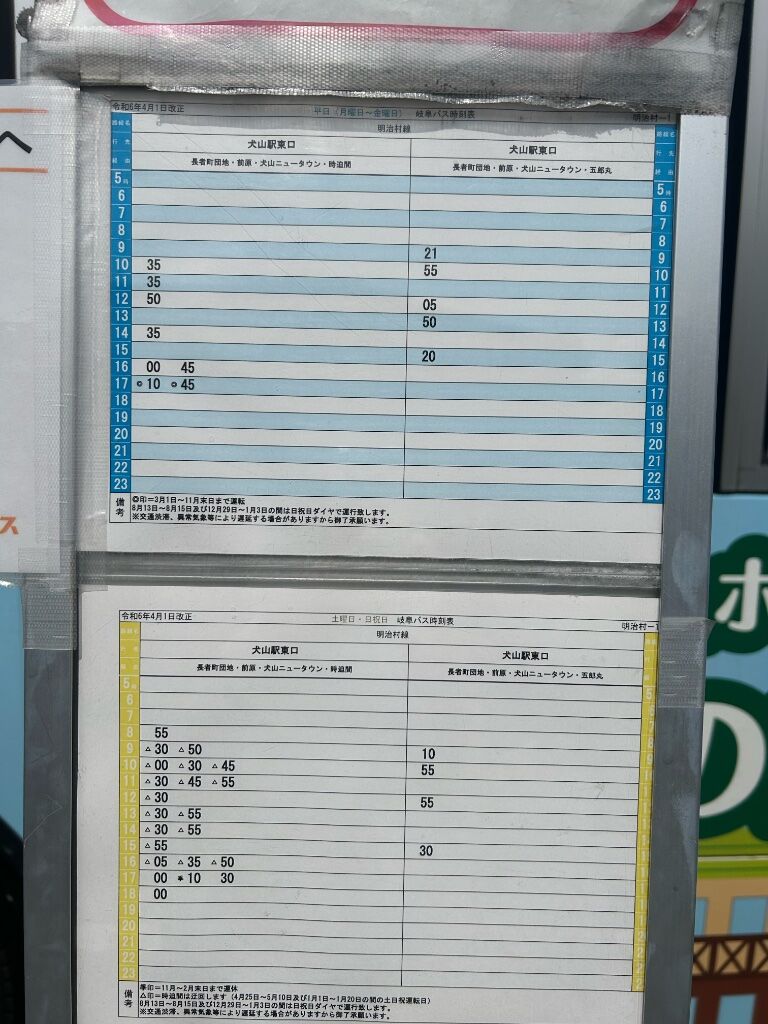 へ
ス
令和6年4月1日改正 平日（月曜日～金曜日） 岐阜バス時刻表 明治村ー1
路線名 明治村線 路線名
行先 犬山駅東口 犬山駅東口 行先
経由 長者町団地・前原・犬山ニュータウン・時迫間 長者町団地・前原・犬山ニュータウン・五郎丸 経由
5時 5時
6 6
7 7
8 8
9 21 9
10 35 55 10
11 35 11
12 50 05 12
13 50 13
14 35 14
15 20 15
16 00 45 16
17 ◎10 ◎45 17
18 18
19 19
20 20
21 21
22 22
23 23
備考
◎印＝3月1日～11月末日まで運転
8月13日～8月15日及び12月29日～1月3日の間は日祝日ダイヤで運行致します。
※交通渋滞、異常気象等により遅延する場合がありますから御了承願います。
令和6年4月1日改正 土曜日・日祝日 岐阜バス時刻表 明治村ー1
路線名 明治村線
犬山駅東口 犬山駅東口
長者町団地・前原・犬山ニュータウン・時迫間 長者町団地・前原・犬山ニュータウン・五郎丸
5時 5
6 6
7 7
8 55 8
9 △30 △50 10 9
10 △00 △30 △45 55
11 △30 △45 △55
12 △30 55
13 △30 △55
14 △30 △55
15 △55 30
16 △05 △35 △50
17 00 *10 30
18 00
19
20
21
22
23
備考
印＝11月～2月末日まで運休
△印＝時迫間は迂回します（4月25日～5月10日及び1月1日～1月20日の間の土日祝運転日）
8月13日～8月15日及び12月29日～1月3日の間は日祝日ダイヤで運行致します。
※交通渋滞、異常気象等により遅延する場合がありますから御了承願います。
ホ
の